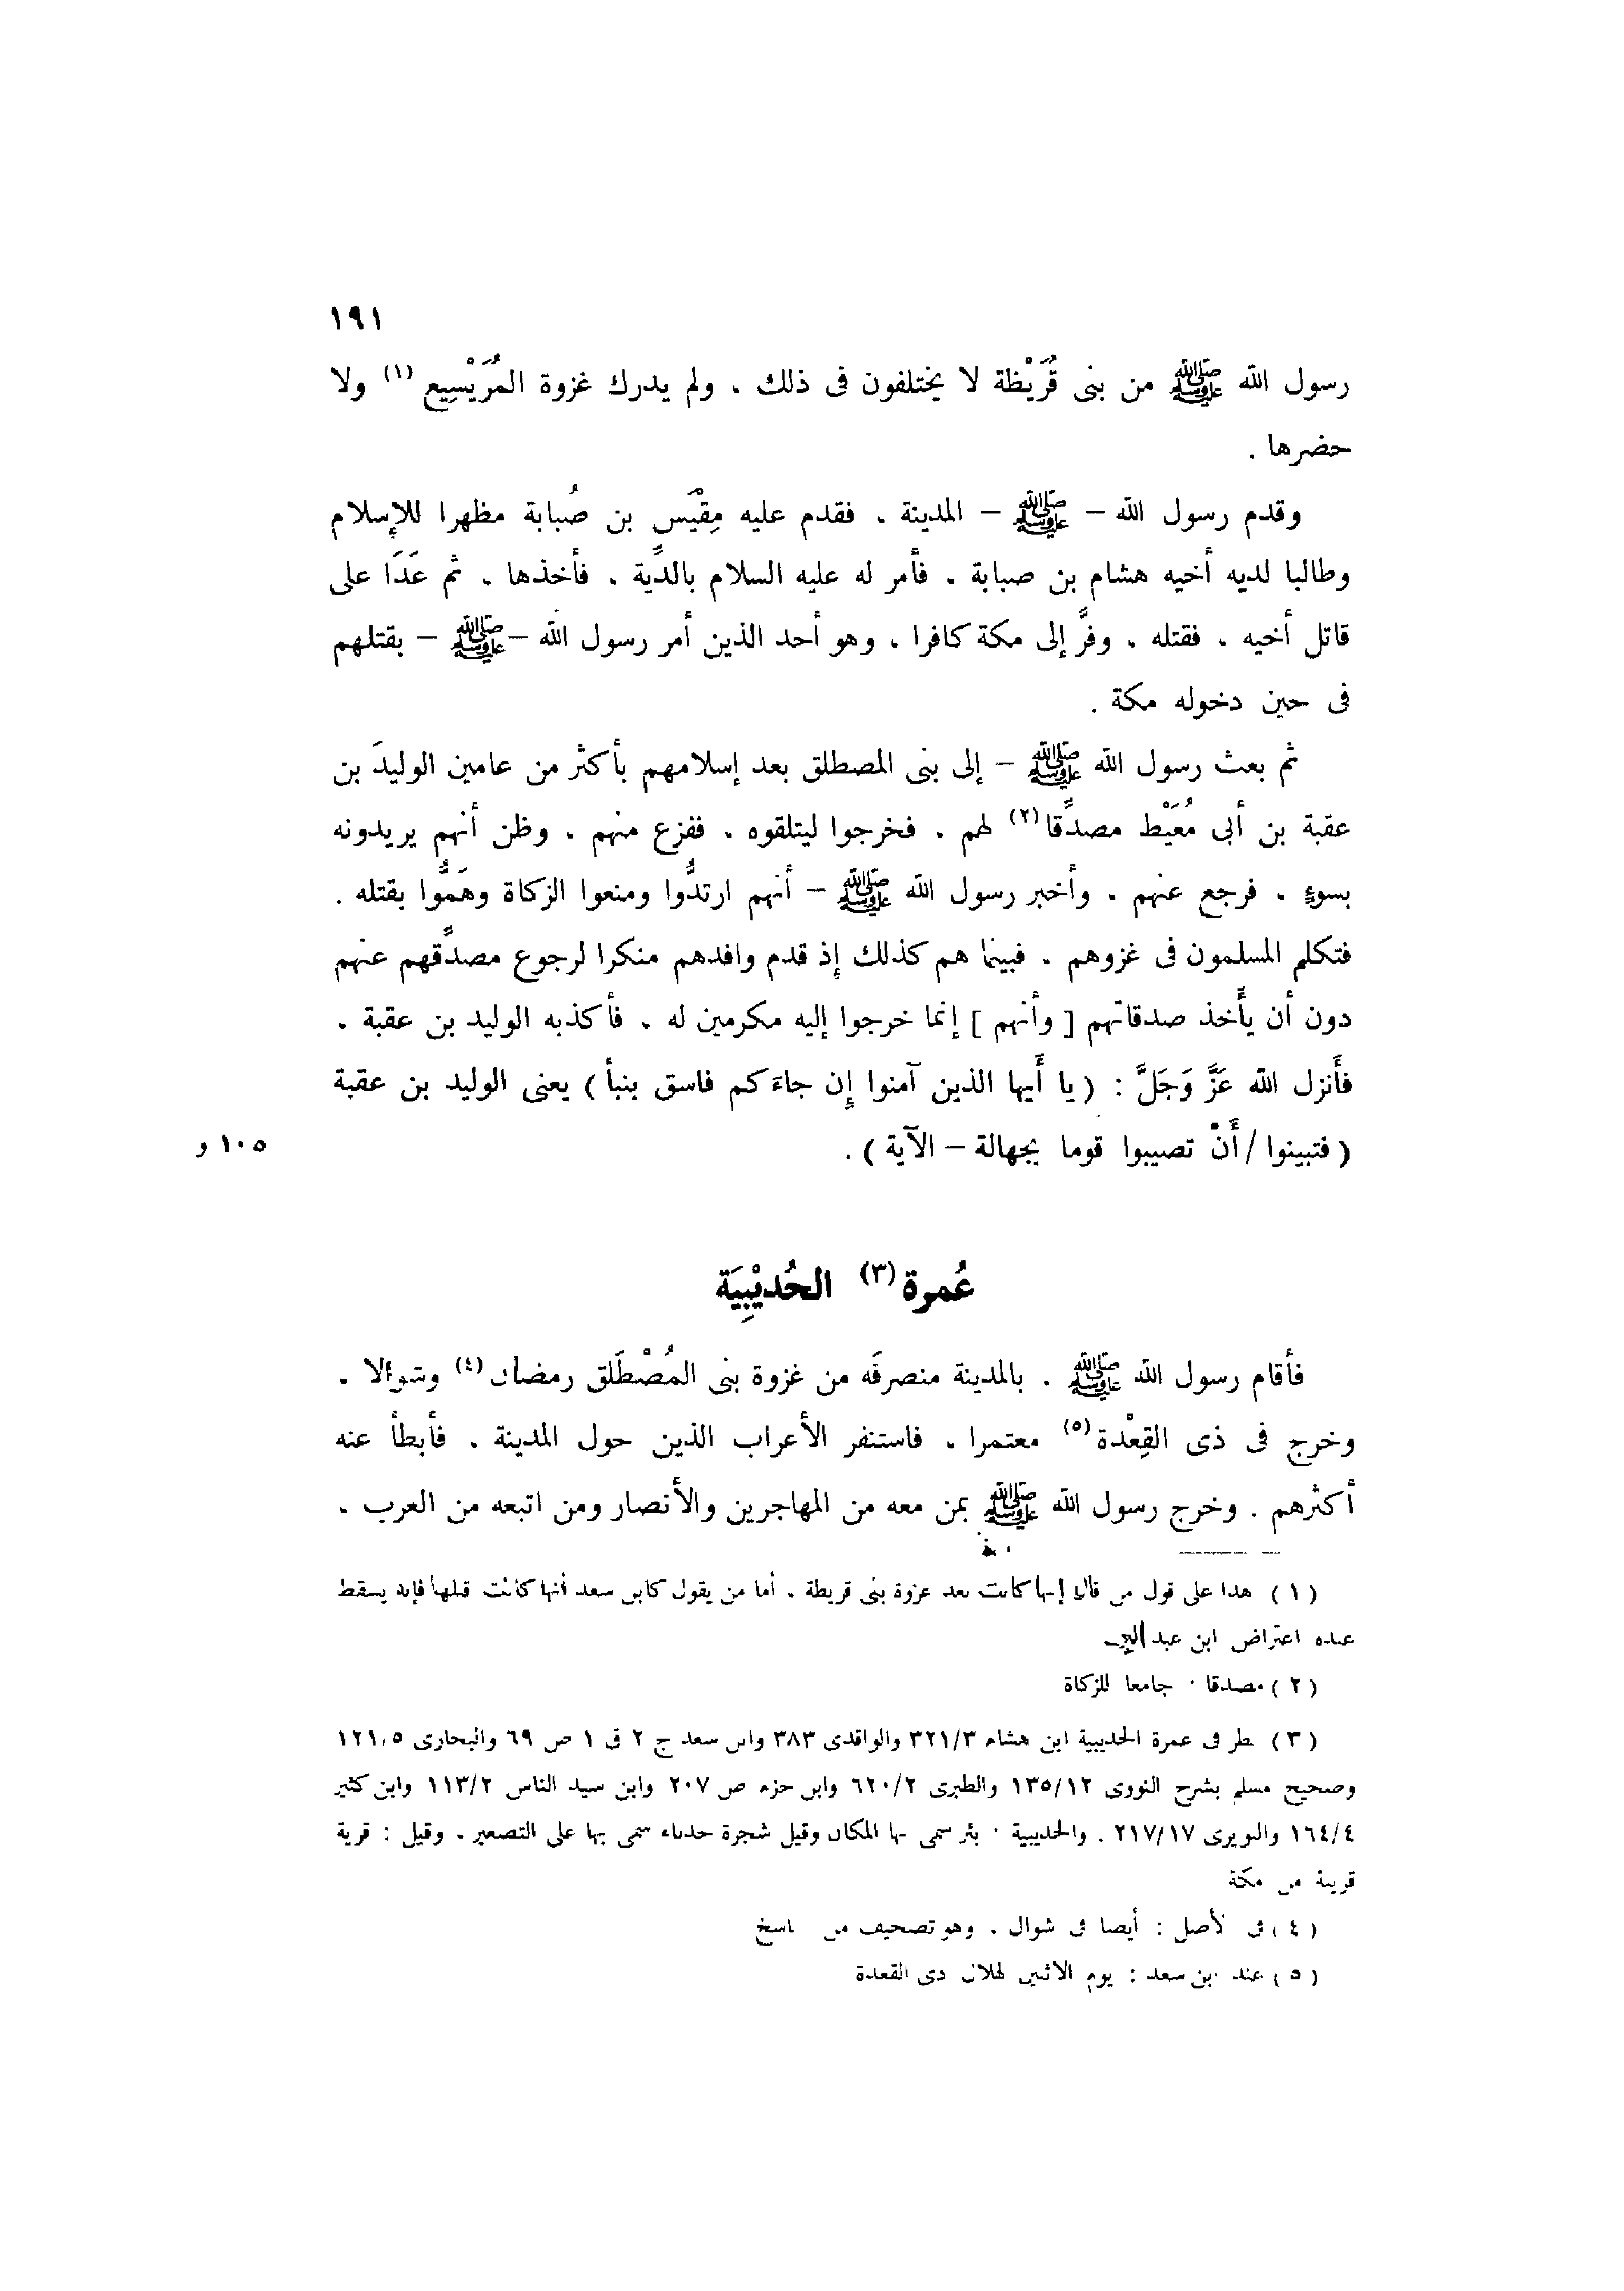 ١٩١
رسول الله ﷺ من بنى قُرَيْظة لا يختلفون فى ذلك ، ولم يدرك غزوة المُرَيْسِيع (١) ولا
حضرها .
وقدم رسول الله – ﷺ – المدينة ، فقدم عليه مِقْيَس بن صُبابة مظهرا للإسلام
وطالبا لديه أخيه هشام بن صبابة ، فأمر له عليه السلام بالدِّية ، فأخذها ، ثم عَدَا على
قاتل أخيه ، فقتله ، وفرَّ إلى مكة كافرا ، وهو أحد الذين أمر رسول الله – ﷺ – بقتلهم
فى حين دخوله مكة .
ثم بعث رسول الله ﷺ – إلى بنى المصطلق بعد إسلامهم بأكثر من عامين الوليدَ بن
عقبة بن أبى مُعَيْط مصدِّقا (٢) لهم ، فخرجوا ليتلقوه ، ففزع منهم ، وظن أنهم يريدونه
بسوءٍ ، فرجع عنهم ، وأخبر رسول الله ﷺ – أنهم ارتدُّوا ومنعوا الزكاة وهَمُّوا بقتله .
فتكلم المسلمون فى غزوهم ، فبينما هم كذلك إذ قدم وافدهم منكرا لرجوع مصدِّقهم عنهم
دون أن يأخذ صدقاتهم [ وأنهم ] إنما خرجوا إليه مكرمين له ، فأكذبه الوليد بن عقبة ،
فأَنزل الله عَزَّ وَجَلَّ : ( يا أَيها الذين آمنوا إِن جاءَكم فاسق بنبأ ) يعنى الوليد بن عقبة
( فتبينوا / أَنْ تصيبوا قوما بجهالة – الآية ) .
١٠٥ و
عُمرة (٣) الحُديْبِيَة
فأقام رسول الله ﷺ . بالمدينة منصرفَه من غزوة بنى المُصْطَلق رمضان (٤) وشوالا ،
وخرج فى ذى القِعْدة (٥) معتمرا ، فاستنفر الأعراب الذين حول المدينة ، فأبطأ عنه
أكثرهم . وخرج رسول الله ﷺ بمن معه من المهاجرين والأنصار ومن اتبعه من العرب ،
( ١ ) هذا على قول من قال إنها كانت بعد غزوة بنى قريظة ، أما من يقول كابن سعد أنها كانت قبلها فإنه يسقط
عنده اعتراض ابن عبد البر
( ٢ ) مصدقا · جامعا للزكاة
( ٣ ) انظر فى عمرة الحديبية ابن هشام ٣٢١/٣ والواقدى ٣٨٣ وابن سعد ج ٢ ق ١ ص ٦٩ والبخارى ١٢١/٥
وصحيح مسلم بشرح النووى ١٣٥/١٢ والطبرى ٦٢٠/٢ وابن حزم ص ٢٠٧ وابن سيد الناس ١١٣/٢ وابن كثير
١٦٤/٤ والنويرى ٢١٧/١٧ . والحديبية · بئر سمى بها المكان وقيل شجرة حدباء سمى بها على التصغير . وقيل : قرية
قريبة من مكة
( ٤ ) فى الأصل : أيضا فى شوال . وهو تصحيف من الناسخ
( ٥ ) عند ابن سعد : يوم الاثنين لهلال ذى القعدة